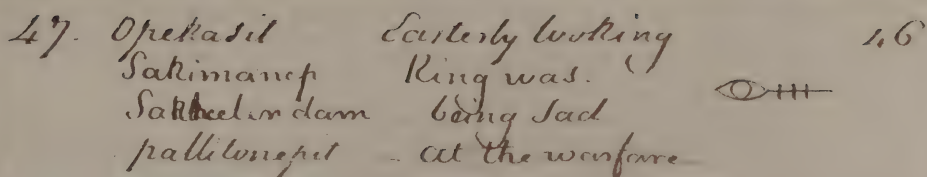 47. Opekasit Easterly looking 1,6
Sakimanep King was.
Sakhelendam being sad
pallitonepit - at the warfare